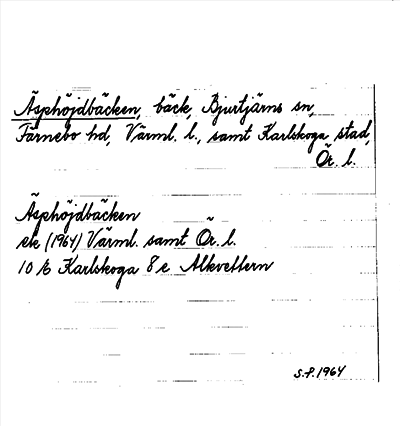 Äsphöjdbäcken, bäck, Bjurtjärns sn,
Färnebo hd, Värml. l., samt Karlskoga stad,
Ör. l.
Äsphöjdbäcken
ek (1964) Värml. samt Ör. l.
10 E Karlskoga 8 e Alkvettern
S.P. 1964